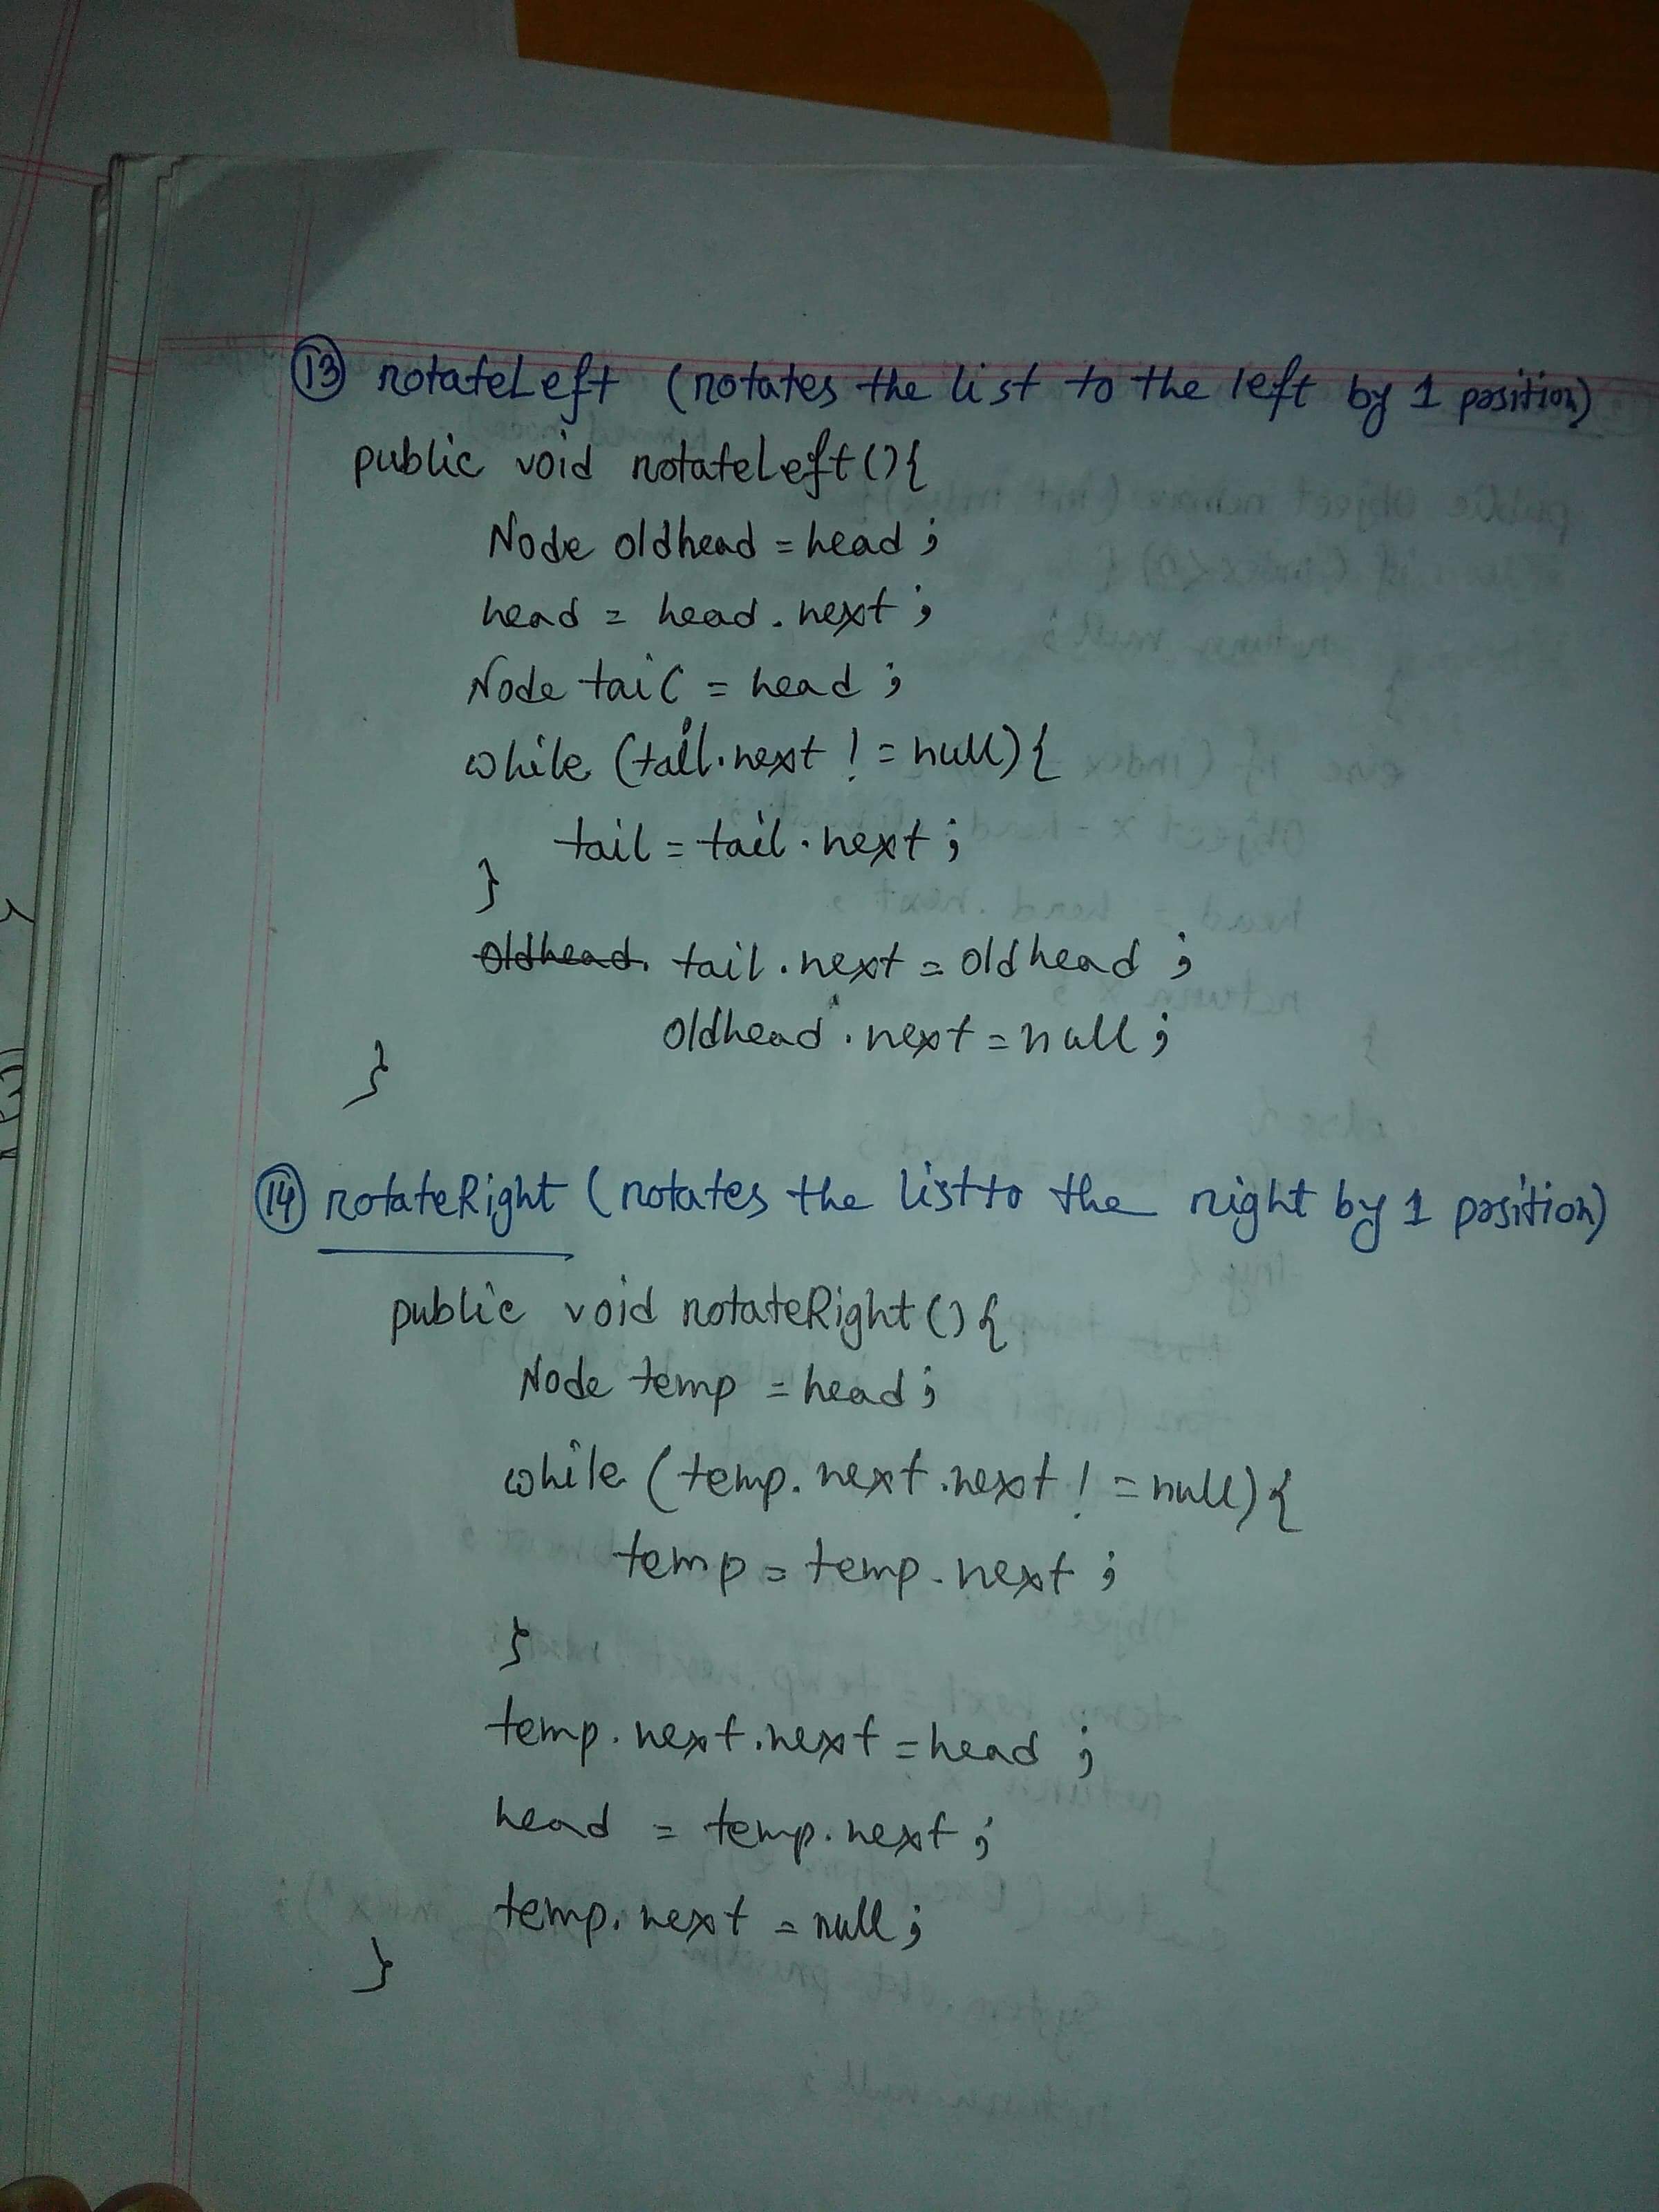 13 rotateLeft (rotates the list to the left by 1 position)
public void rotateLeft(){
Node oldhead = head;
head = head.next;
Node tail = head;
while (tail.next != null){
tail = tail.next;
}
oldhead. tail.next = oldhead;
oldhead.next = null;
}
14 rotateRight (rotates the list to the right by 1 position)
public void rotateRight(){
Node temp = head;
while (temp.next.next != null){
temp = temp.next;
}
temp.next.next = head;
head = temp.next;
temp.next = null;
}